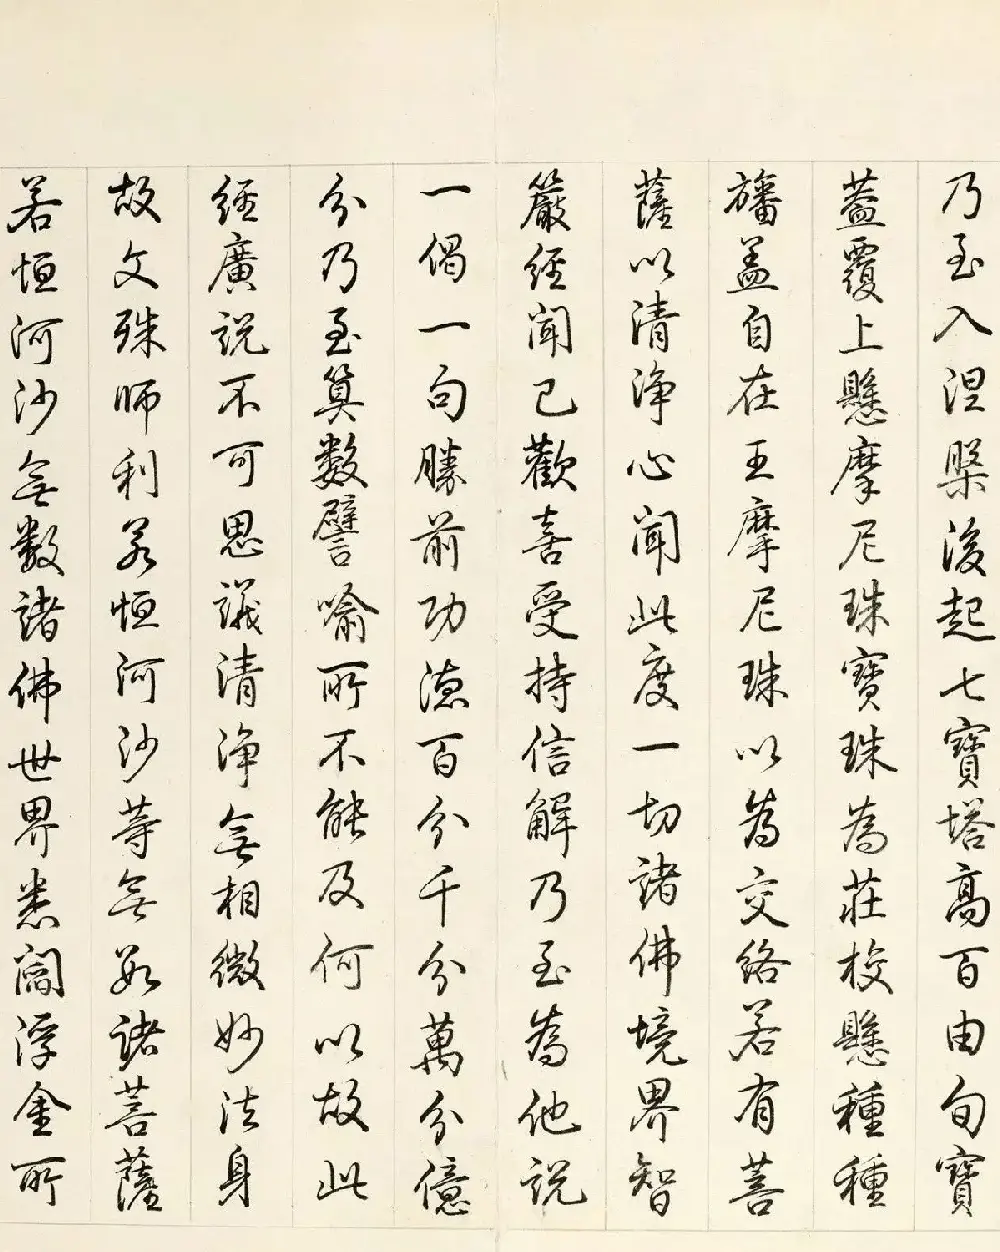 乃至入涅槃後起七寶塔高百由旬寶
蓋覆上懸摩尼珠寶珠為莊校懸種種
旛盖自在王摩尼珠以為交絡若有菩
薩以清淨心聞此度一切諸佛境界智
嚴經聞已歡喜受持信解乃至為他說
一偈一句勝前功德百分千分萬分億
分乃至算數譬喻所不能及何以故此
經廣說不可思議清淨無相微妙法身
故文殊師利若恒河沙等無數諸菩薩
若恒河沙無數諸佛世界悉閻浮金所